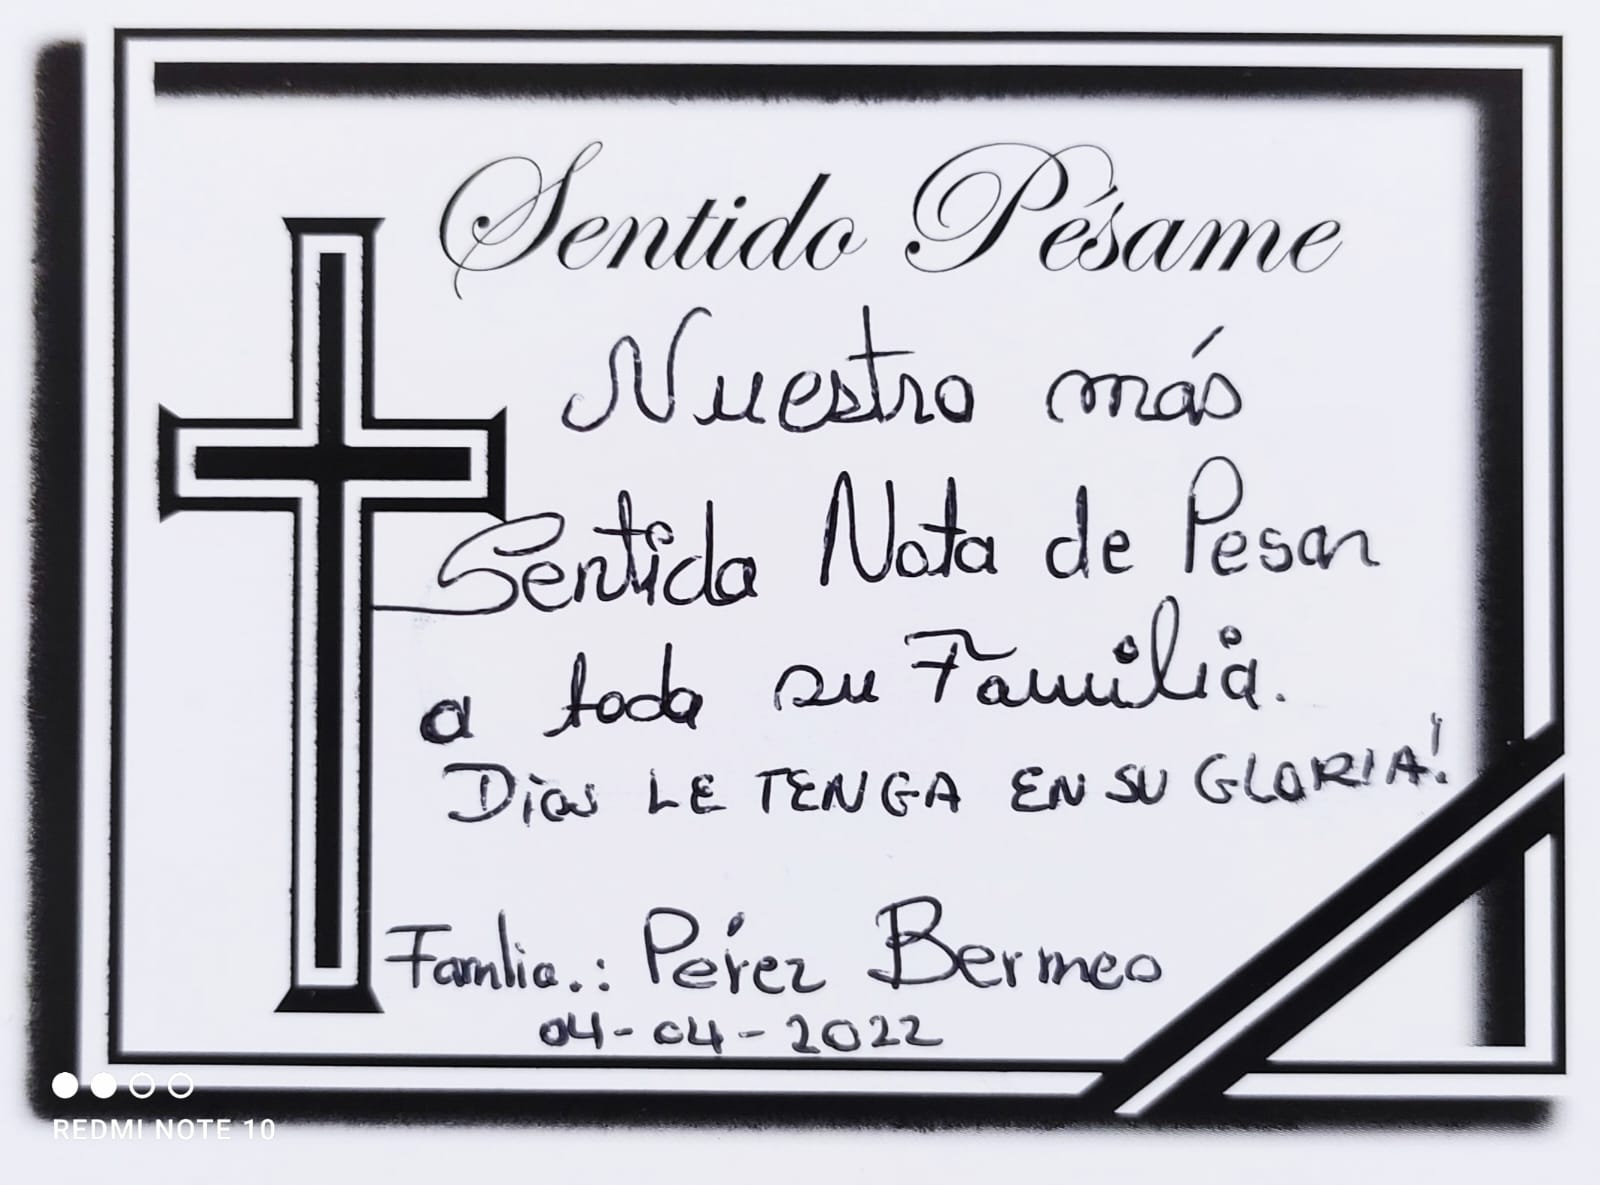 Sentido Pésame
Nuestro más
Sentida Nota de Pesar
a toda su Familia.
Dios LE TENGA EN SU GLORIA!
Familia.: Pérez Bermeo
04-04-2022
REDMI NOTE 10